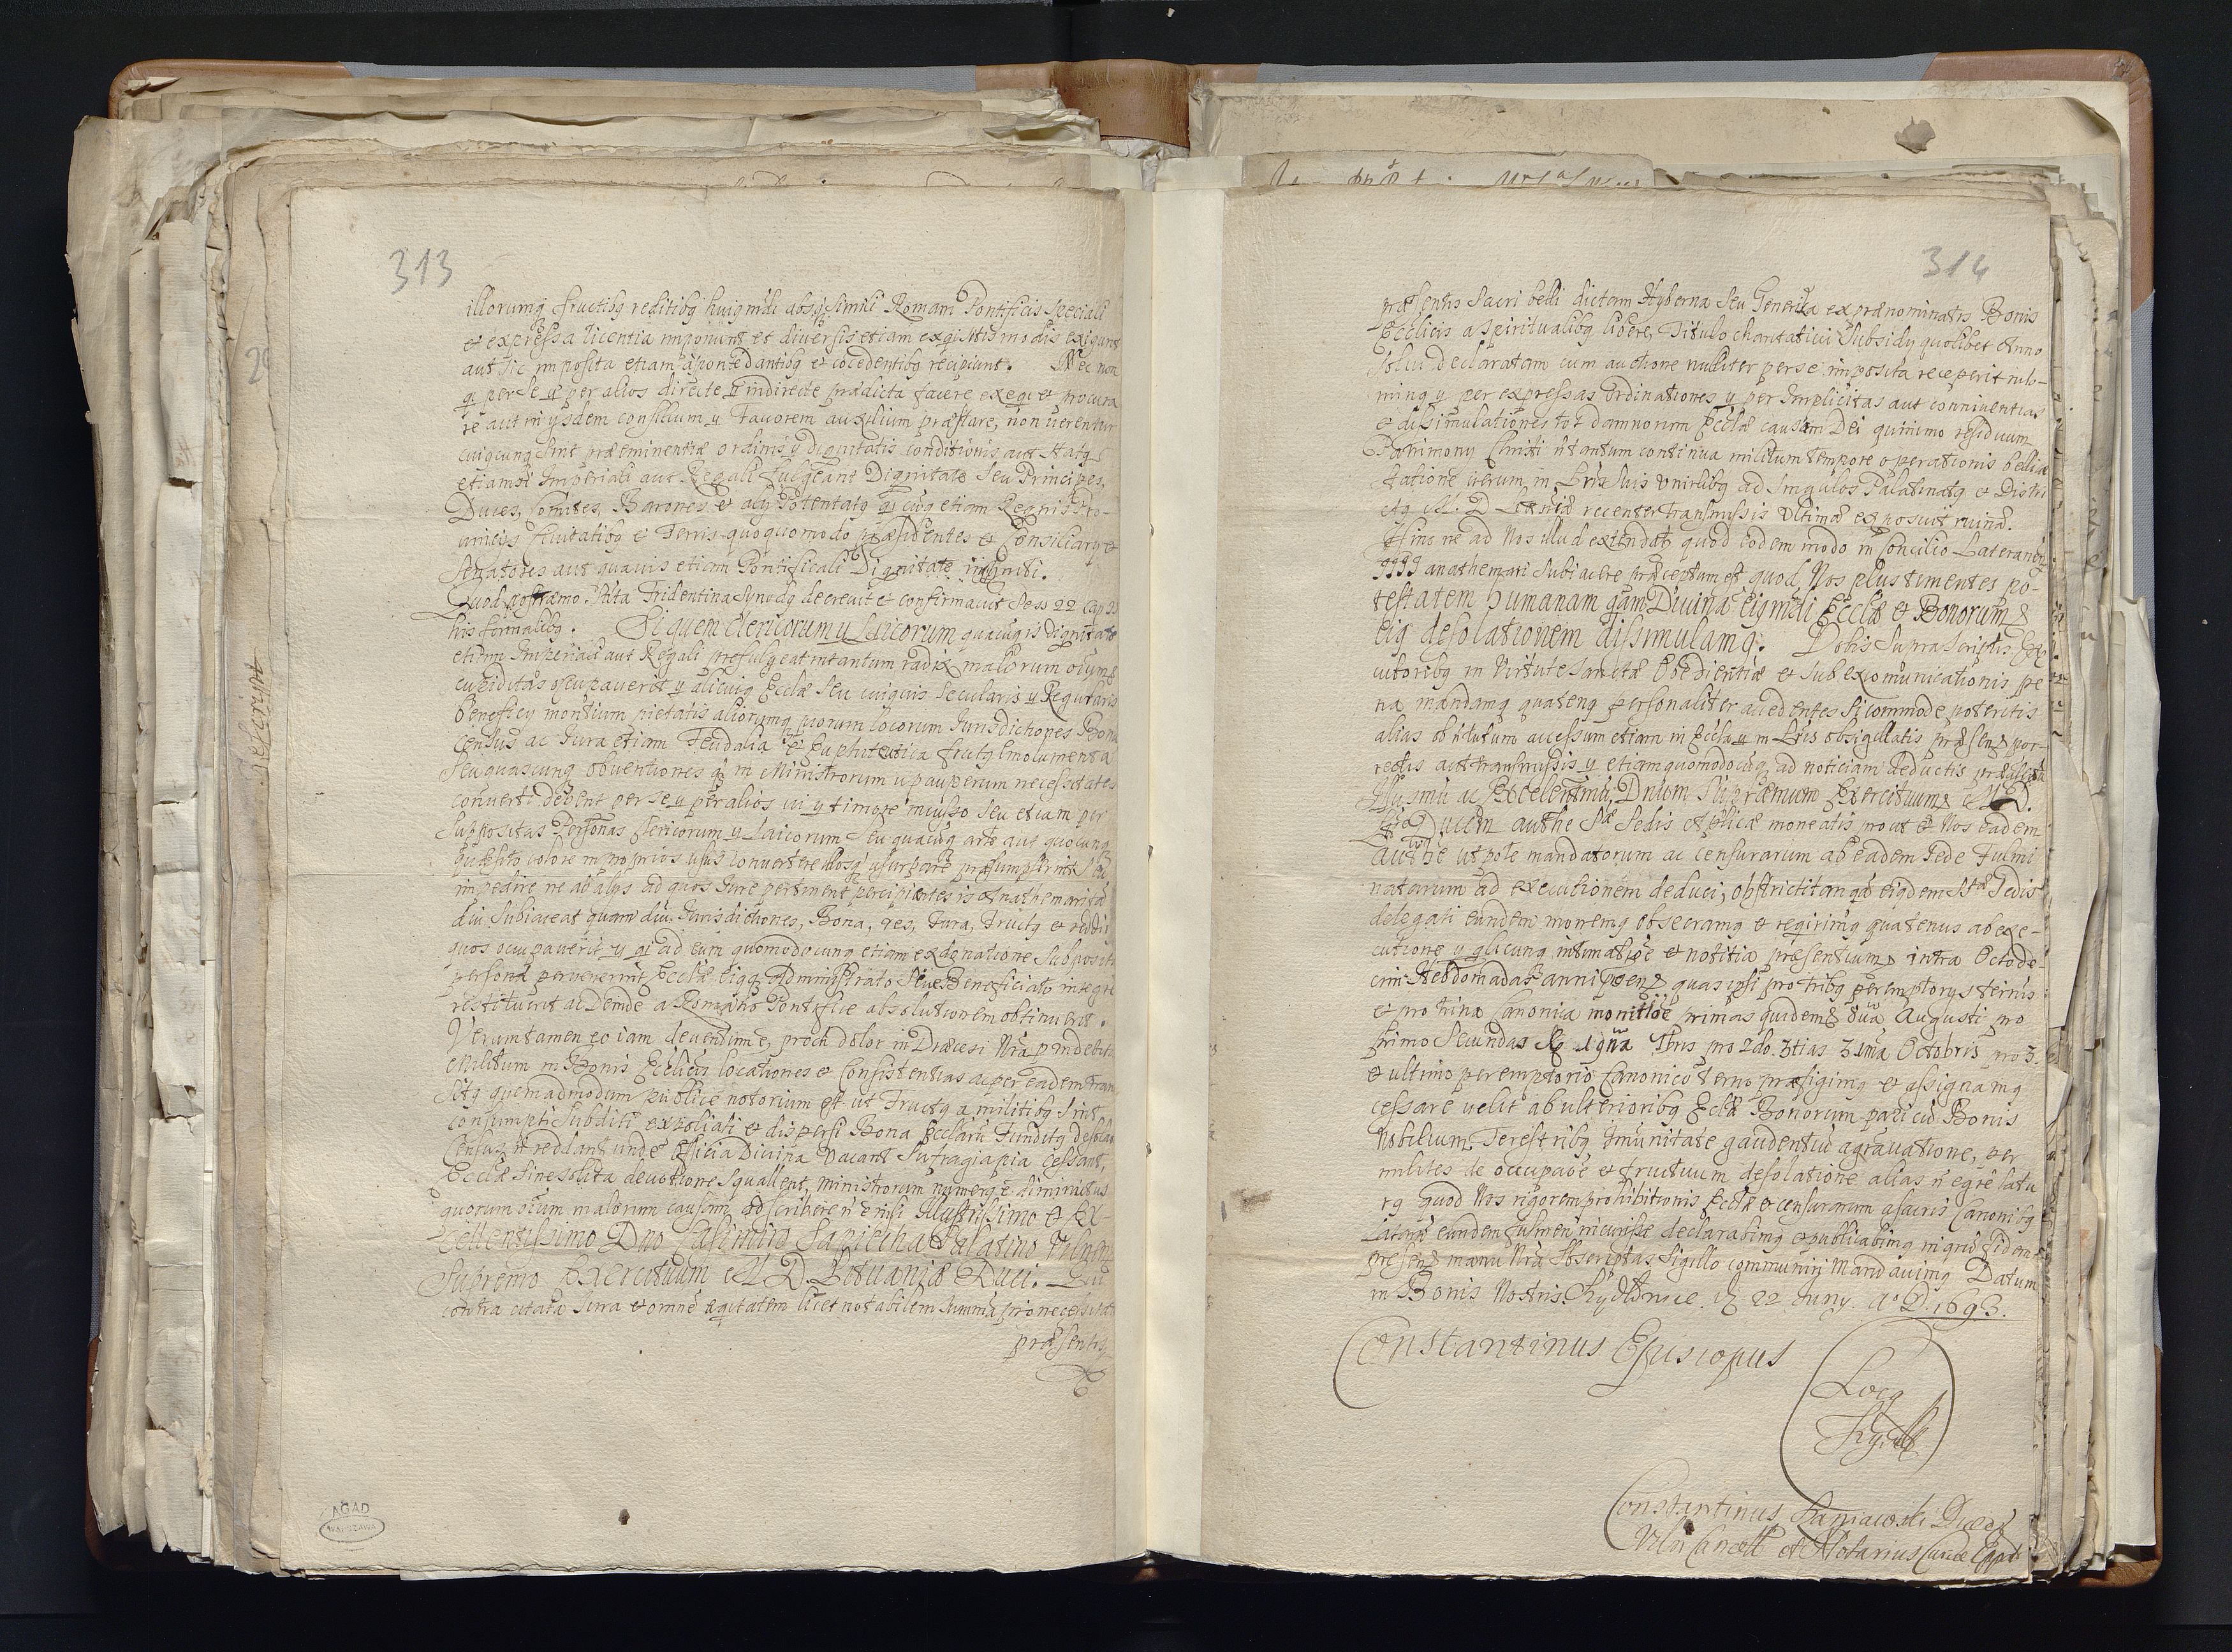 313
illorumq fructibq reditibq huigmdi absq simili Romani Pontificis speciali
et expressa licentia imponunt et diversis etiam exqisitis modis exigunt
aut sic imposita etiam a sponte dantibq et cocedentibq recipiunt. Nec non
qi per se vel per alios directe vel indirecte prædicta facere exeqi et procura
re aut in ysdem consilium vel Favorem auxilium præstare, non uerentur
cuiqcunq sint præeminentiæ ordinis vel dignitatis conditionis aut statq
etiamsi Imperiali aut Regali fulgeant Dignitate seu Principes,
Duces, Comites, Barones et alij Potentatq qicūq etiam Regnis Pro-
uincijs Ciuitatibq et Terris quoquomodo præsidentes et Consiliary et
Senatores aut quauis etiam Pontificali Dignitate insigniti.
Quod postræmo Sta Tridentina Synodq decreuit et confirmauit Sess 22 Cap XI
his formalibq. Si quem Clericorum vel Laicorum quacūq is dignitate
etiam Imperiali aut Regali præfulgeat in tantum radix malorum oium
cupiditas ocupauerit vt alicuiq Ecclæ seu cuiquis secularis vel Regularis
beneficy montium pietatis aliorumq piorum locorum Iurisdictiones Bona
census ac Iura etiam Feudalia et Emphiteutica fructq emolumenta
seu quascunq obuentiones qæ in Ministrorum et pauperum necessitates
conuerti debent per se vel per alios ui vel timore incusso seu etiam per
suppositas Personas Clericorum vel Laicorum seu quacūq arte aut quocunq
quæsito colore in proprios usus conuertere illosq usurpare præsumpserit seu
impedire ne ab alys ad quos Iure pertinent percipiantur is Anathemati ta
diu subiaceat quam diu Iurisdictiones, Bona, res, Iura, Fructq et reddit
quos occupauerit vel qi ad eum quomodocunq etiam ex donatione supposit
persona peruenerint Ecclæ eiqq Administrato siue Beneficiato integre
restituerit ac Deinde a Romano Pontifice absolutionem obtinuerit.
Veruntamen eo iam deuentum e, proch dolor in Diœcesi Nrā p indebit
Militum in Bonis Ecclicis locationes et Consistentias ac per eadem tran
sitq quemadmodum publice notorium est ut Fructq a militibq sint
consumpti subditi expoliati et dispersi Bona Ecclarū Funditq desola
Census n reddant unde Officia Divina vacant Sufragia pia cessant,
Ecclæ sine solita deuotione squallent, ministrorum numerq e diminutus
quorum oium malorum causam adscribere n e nisi Illustrissimo et Ex-
cellentissimo Dno Casimiro Sapieha Palatino Vilnen
Supremo Exercituum M D. Lituaniæ Duci. Qui
contra citata Iura et omne æqitatem licet notabilem summā pro necessitate
præsentis
AGAD
WARSZAWA
314
præsentis Sacri belli dictam Hyberna seu Generala ex prænominatis Bonis
Ecclicis a spiritualibq libere, Titulo charitatiui Subsidy quolibet Anno
solui declaratam cum auctione nulliter per se imposita receperit nilo-
minq et per expressas ordinationes vel per Implicitas aut conniuentias
et dissimulationes tot damnorum Ecclæ causam Dei quinimo residuum
Patrimony Christi in tantum continua militum tempore operationis bellicæ
statione iterum in Lris suis vnirlibq ad singulos Palatinatq et Distri
ctq M. D. recenter transmissis ultimæ exposuit ruinæ.
Hinc ne ad Nos illud extendatr quod eodem modo in Concilio Lateranen
anathemati subiacere præceptum est quod, Nos plus timentes po-
testatem humanam qam Divinā eiqmdi Ecclæ et Bonorum
eiq desolationem dissimulamq. Vobis supra scriptis Exe
cutoribq in Virtute Sanctæ Obedientiæ et sub excomunicationis pœ
na mandamq quatenq personaliter accedentes si commode poteritis
alias ob tutum accessum etiam in Eccla vel in Lris obsigillatis præsen por-
rectis aut transmissis vel etiam quomodocūq ad noticiam deductis præfatū
Illussmū ac Excelentmū Dnum Supræmum Exercituum M D.
L Ducem authe Stæ Sedis Aplicæ moneatis prout et Nos eadem
authe utpote mandatorum ac censurarum ab eadem Sede Fulmi
natarum ad executionem deduci, obstricti tanqā eiqdem Stæ Sedis
delegati eundem monemq obsecramq et reqirimq quatenus ab exe-
cutione vel qlacunq intimatioe et notitia præsentium intra Octode-
cim Hebdomadas anni præsen quas ipsi pro tribq peremptorys ternis
et pro trina Canonica monitioe primas quidem Augusti pro
primo Secundas 7bris pro 2do. 3tias 31ma Octobris pro 3.
et ultimo peremptorio Canonico termo præfigimq et assignamq
cessare uelit ab ulterioribq Ecclæ Bonorum pari cū Bonis
Nobilium Terestribq Imunitate gaudentiū agrauatione, per
milites de occupaoe et fructuum desolatione alias n egre latu
rq quod Nos rigorem prohibitionis Ecclæ et censurarum a sacris Canonibq
latarū eundem incurrisse declarabimq et publicabimq in qrū fidem
præsen manu Nrā Sbscriptas Sigillo communiri Mandauimq Datum
in Bonis Nostris D 22 Iuny. Ao D. 1693.
Constantinus Episcopus
Locq
Sigilli
Constantinus Łaniewski Diœc
Viln Cancell et Notarius Curiæ Eppl